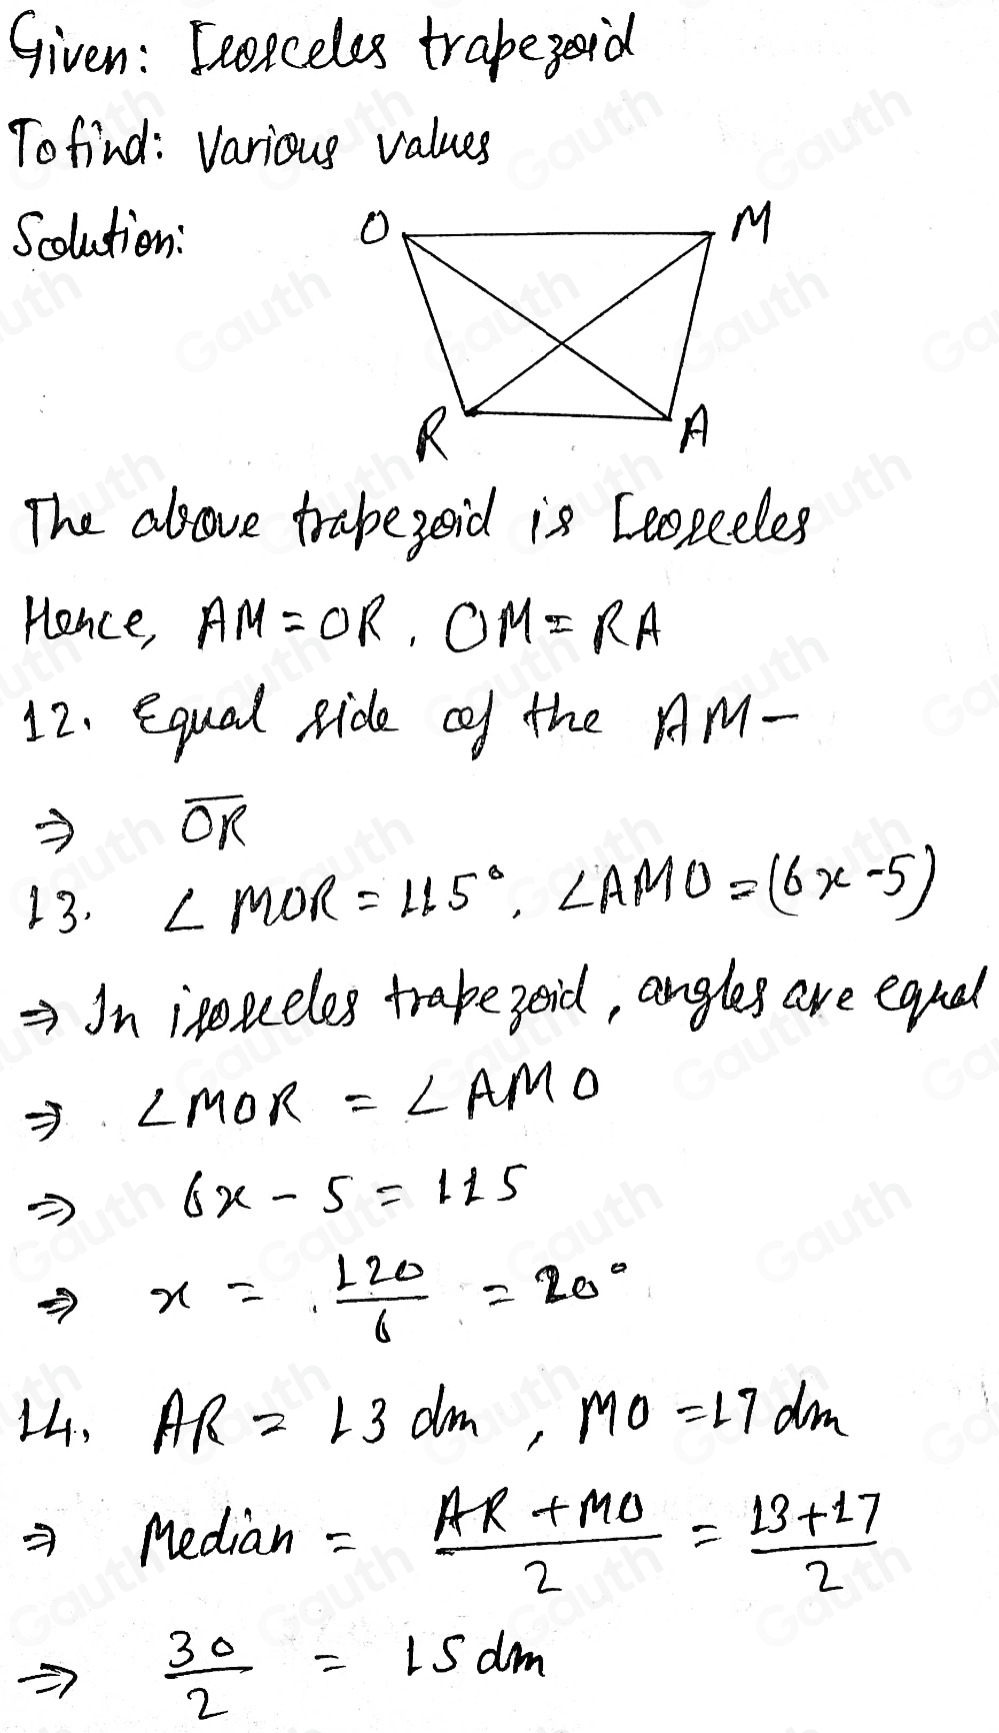 Given: Isosceles trapezoid
To find: Various values
Solution:
O M
R A
The above trapezoid is Isosceles
Hence, AM = OR, OM = RA
12. Equal side of the AM -
⇒ \overline{OR}
13. ∠MOR = 115°, ∠AMO = (6x-5)
⇒ In isosceles trapezoid, angles are equal
⇒ ∠MOR = ∠AMO
⇒ 6x - 5 = 115
⇒ x = \frac{120}{6} = 20°
14. AR = 13 dm, MO = 17 dm
⇒ Median = \frac{AR + MO}{2} = \frac{13+17}{2}
⇒ \frac{30}{2} = 15 dm